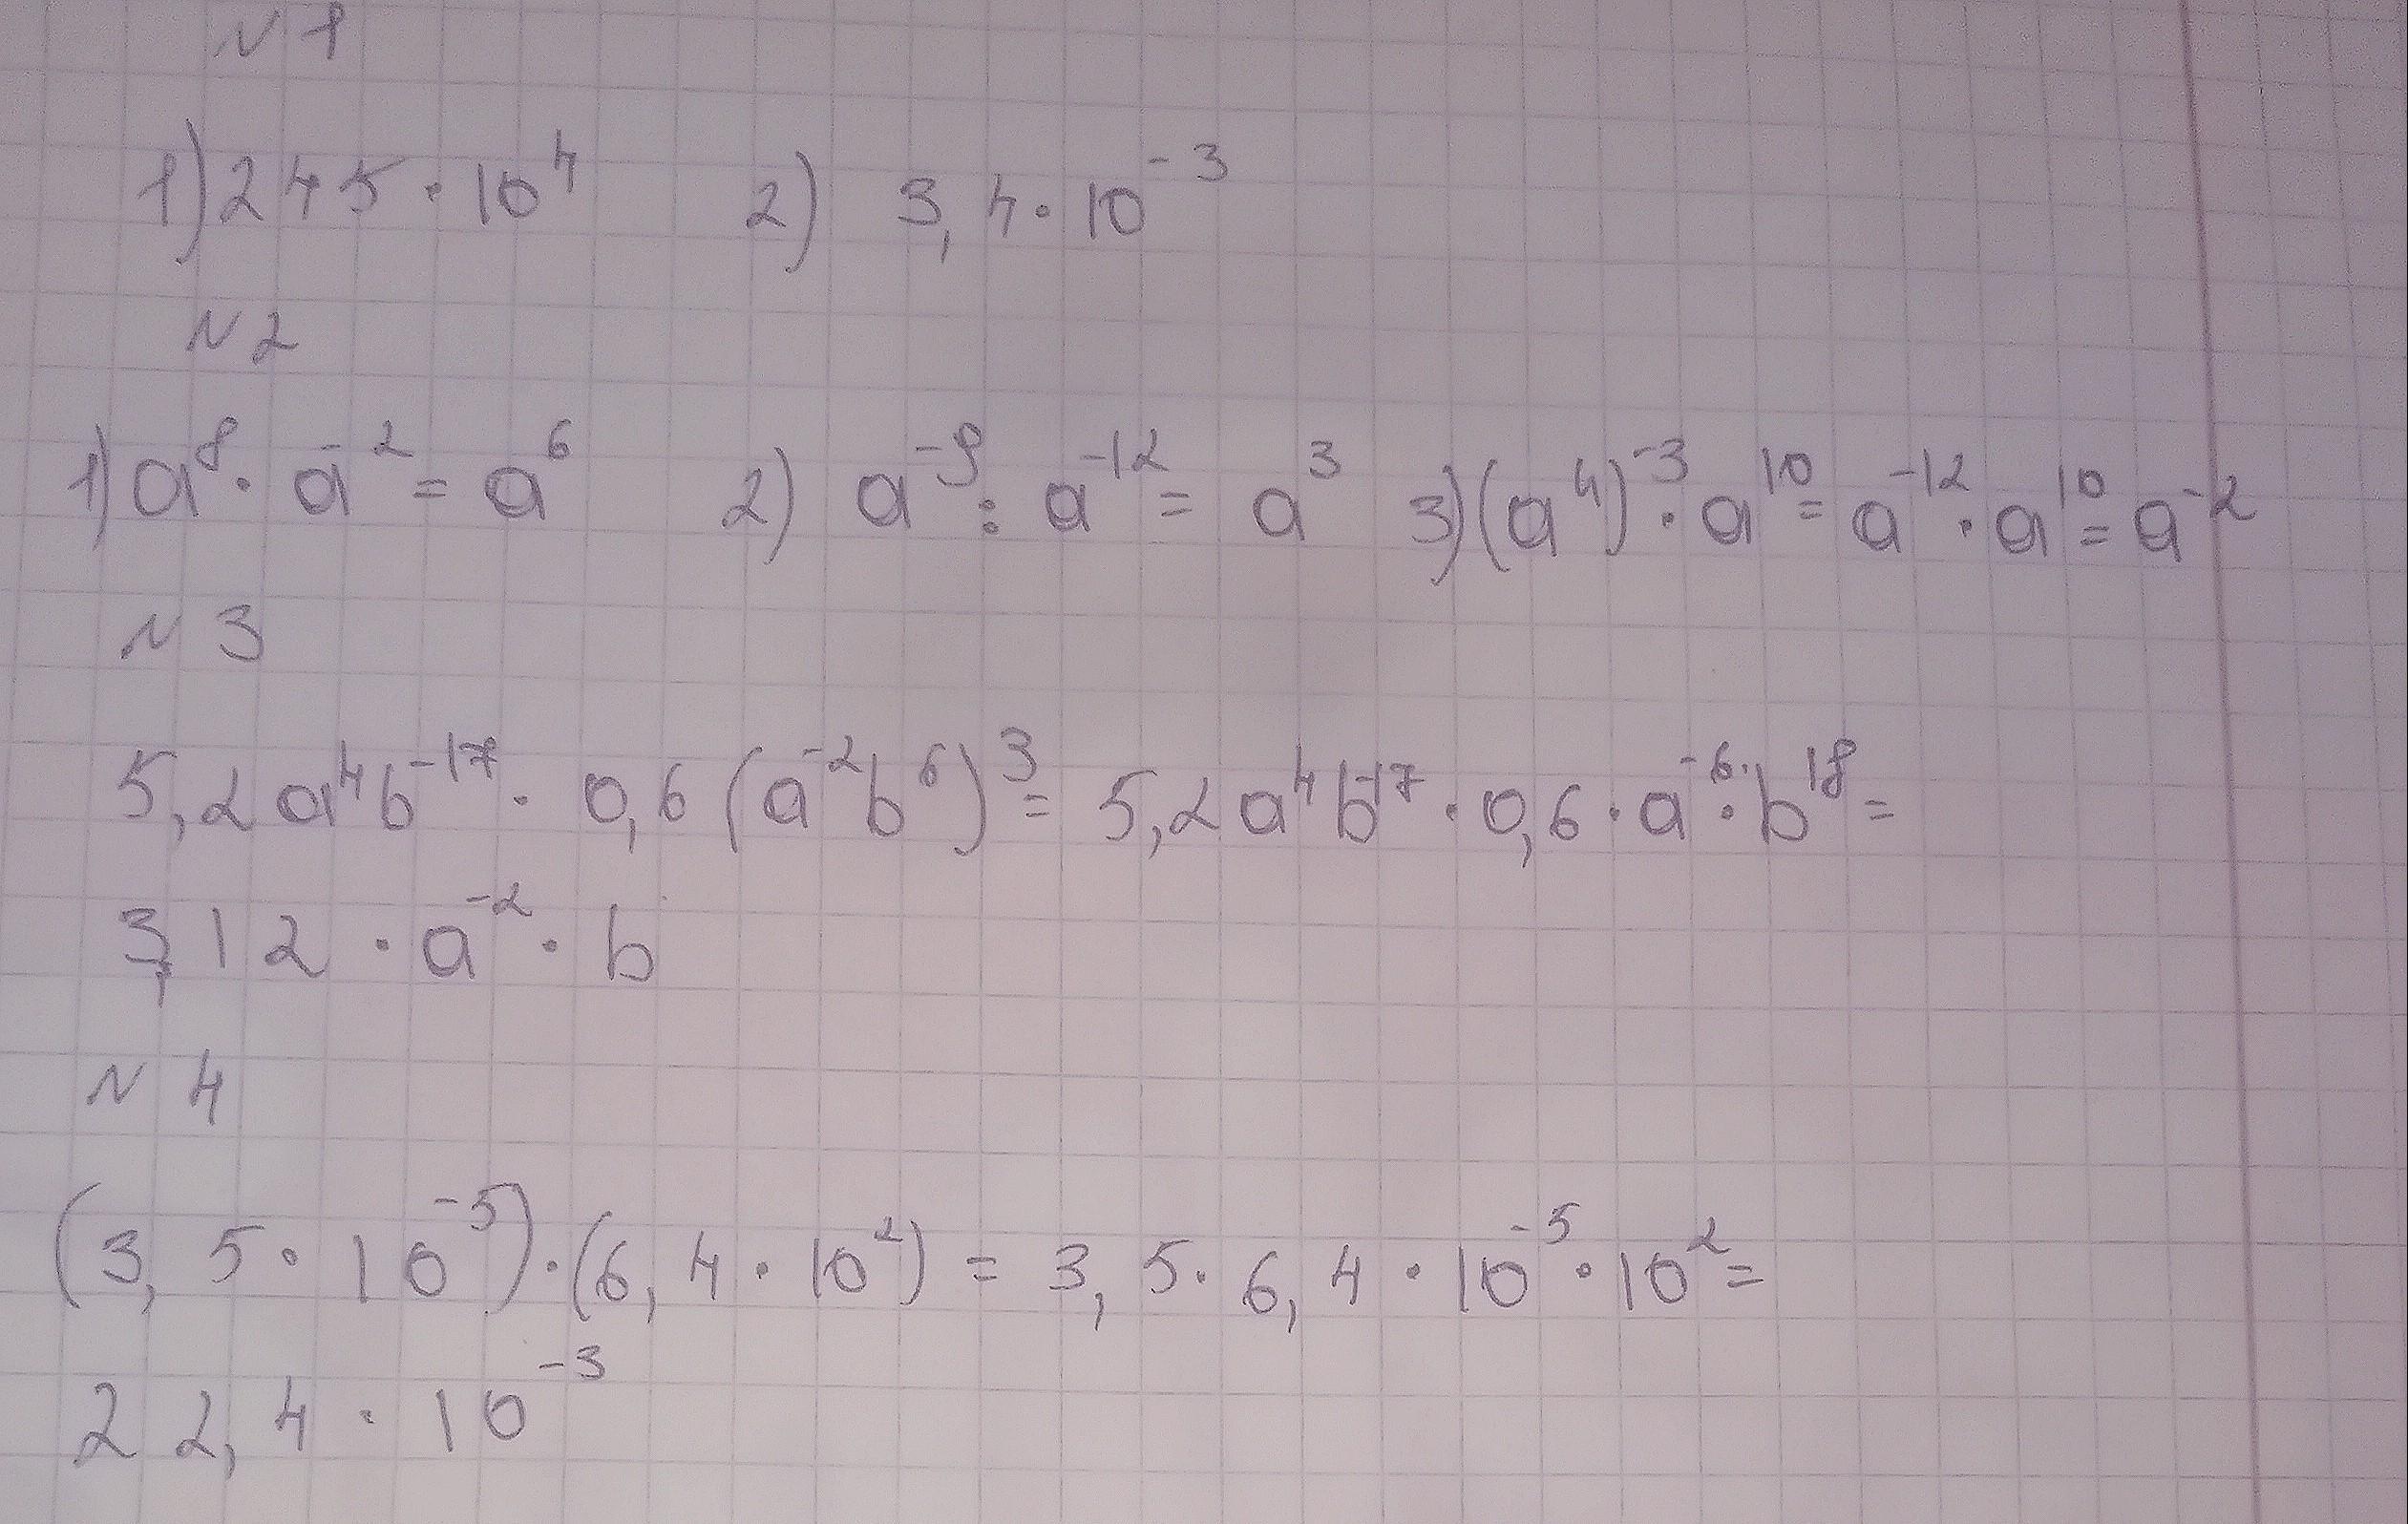 №1
1) 245 · 10⁴ 2) 3,4 · 10⁻³
№2
1) a⁸ · a⁻² = a⁶ 2) a⁻⁹ : a⁻¹² = a³ 3) (a⁴)⁻³ · a¹⁰ = a⁻¹² · a¹⁰ = a⁻²
№3
5,2a⁴b⁻¹⁷ · 0,6(a⁻²b⁶)³ = 5,2a⁴b⁻¹⁷ · 0,6 · a⁻⁶ · b¹⁸ =
3,12 · a⁻² · b
№4
(3,5 · 10⁻⁵) · (6,4 · 10²) = 3,5 · 6,4 · 10⁻⁵ · 10² =
22,4 · 10⁻³